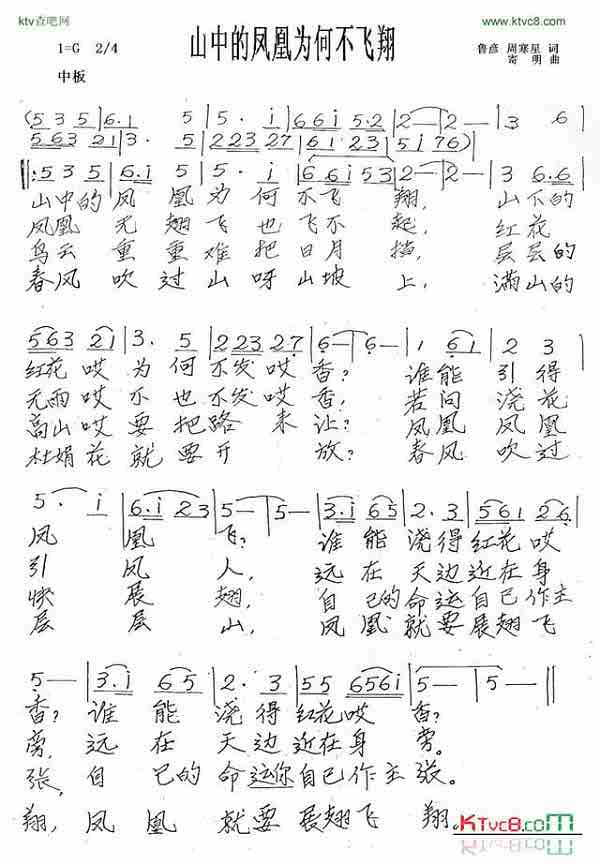 ktv查吧网
www.ktvc8.com
山中的凤凰为何不飞翔
1=G 2/4
鲁彦 周寒星 词
中板
寄 明 曲
(5 3 5 | 6·i 5 | 5· i | 6 6 i 5·2 | 2— | 2— | 3 6 |
5 6 3 2 1 | 3· 5 | 2 2 3 2 7 | 6 1 2 3 | 5 i 7 6 )
‖: 5 3 5 | 6·i 5 | 5· i | 6 6 i 5 3 | 2— | 2— | 3 6·6 |
山中的凤 凰为何不飞 翔, 山下的
凤凰 无翅飞也飞不 起, 红花
乌云 重重难把日月 挡, 层层的
春风 吹过山呀山坡 上, 满山的
5 6 3 2 1 | 3· 5 | 2 2 3 2 7 | 6— | 6— | 1 6 | 2 3 |
红花哎为何不发哎 香? 谁能引得
无雨哎不也不发哎 香, 若问浇花
高山哎要把路来 让? 凤凰凤凰
杜娟花就要开 放? 春风吹过
5· i | 6·i 2 3 | 5— | 5— | 3·i 6 5 | 2·3 | 5 5 6 1 | 2 6· |
凤 凰 飞? 谁能浇得红花哎
引 凤 人, 远在天边近在身
快 展 翅, 自己的命运自己作主
层 层 山, 凤凰就要展翅飞
5— | 3·i 6 5 | 2· 3 | 5 5 6 5 6 i | 5— | 5— ‖
香? 谁能浇得红花哎 香?
旁, 远在天边近在身 旁。
张, 自己的命运你自己作主张。
翔, 凤凰就要展翅飞 翔。
KTvc8.com